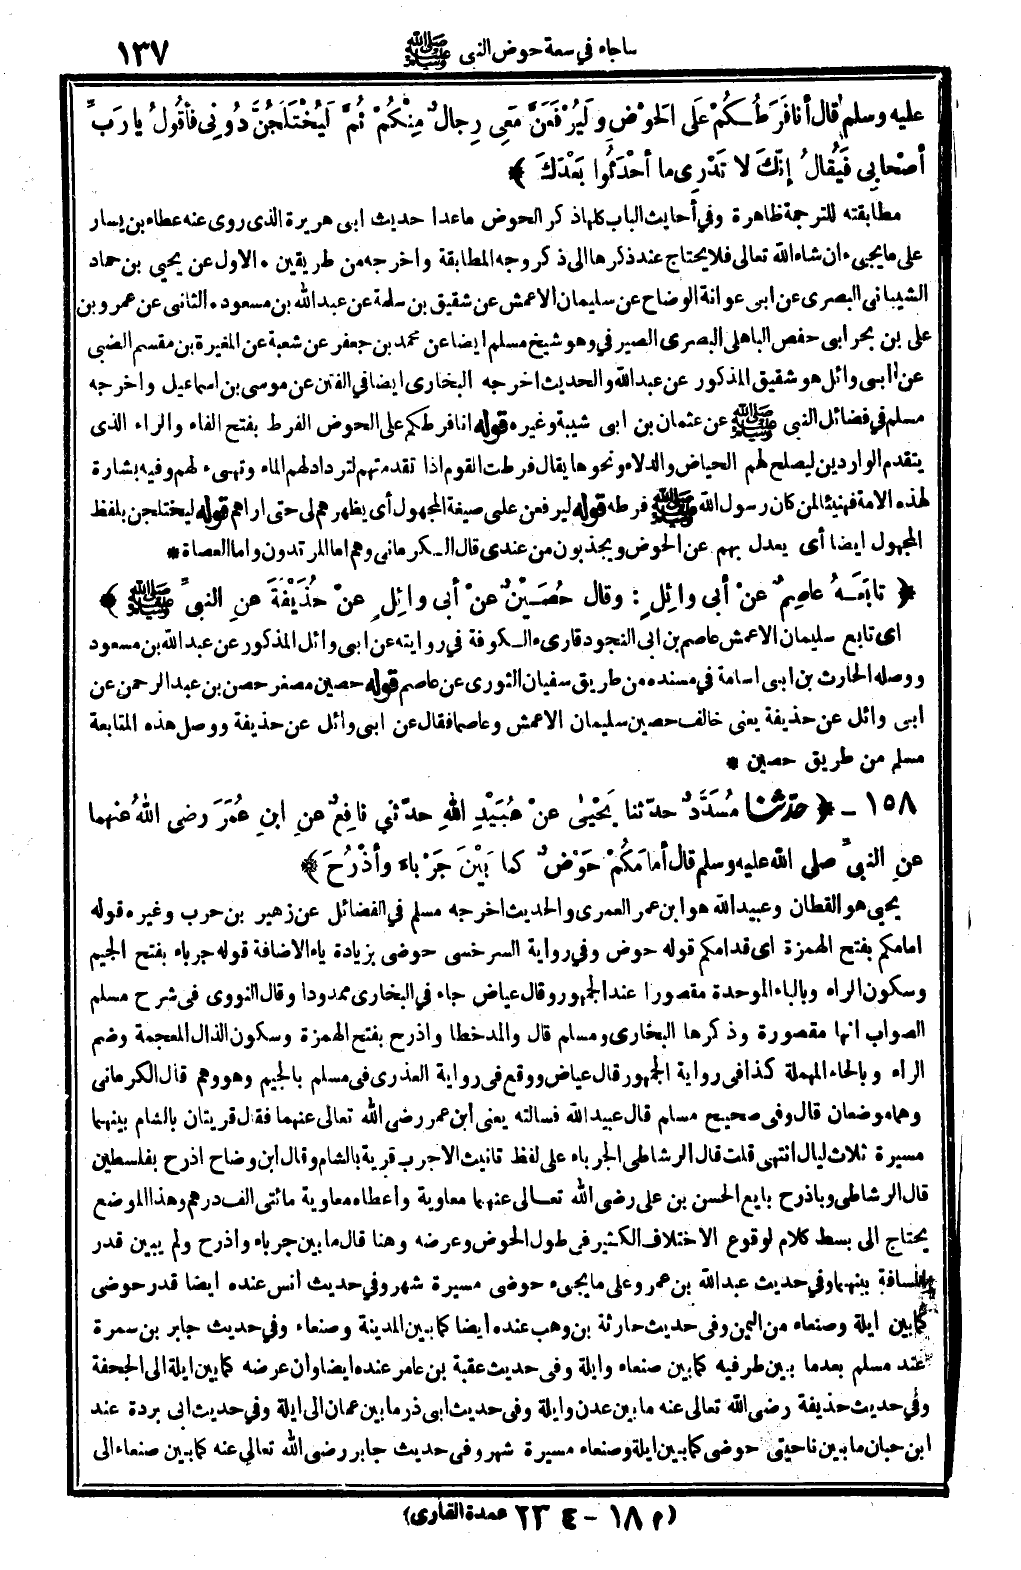 ماجاء في سعة حوض النبي ﷺ ١٣٧
عليه وسلم قال أنا فَرَطُـكُمْ عَلَى الحَوْضِ ولَيُرْفَعَنَّ مَعِي رِجالٌ مِنْكُمْ ثُمَّ لَيُخْتَلَجُنَّ دُونِى فأقُولُ يارَبِّ
أصْحابِي فَيُقالُ إنَّكَ لا تَدْرِى ما أحْدَثُوا بَعْدَكَ ﴾
مطابقته للترجمة ظاهرة وفي أحايث الباب كلها ذكر الحوض ماعدا حديث ابى هريرة الذى روى عنه عطاء بن يسار
على مايجىء ان شاء الله تعالى فلايحتاج عند ذكرها الى ذكر وجه المطابقة واخرجه من طريقين ٠ الاول عن يحيى بن حماد
الشيبانى البصرى عن ابى عوانة الوضاح عن سليمان الاعمش عن شقيق بن سلمة عن عبدالله بن مسعود ٠ الثانى عن عمرو بن
على بن بحر ابى حفص الباهلى البصرى الصيرفي وهو شيخ مسلم ايضا عن محمد بن جعفر عن شعبة عن المغيرة بن مقسم الضبى
عن ابى وائل هو شقيق المذكور عن عبدالله والحديث اخرجه البخارى ايضا في الفتن عن موسى بن اسماعيل واخرجه
مسلم في فضائل النبى ﷺ عن عثمان بن ابى شيبة وغيره قوله انا فرطكم على الحوض الفرط بفتح الفاء والراء الذى
يتقدم الواردين ليصلح لهم الحياض والدلاء ونحوها يقال فرطت القوم اذا تقدمتهم لترداد لهم الماء وتهىء لهم وفيه بشارة
لهذه الامة فهنيئا لمن كان رسول الله ﷺ فرطه قوله ليرفعن على صيغة المجهول أى يظهرهم لى حتى اراهم قوله ليختلجن بلفظ
المجهول ايضا أى يعدل بهم عن الحوض ويجذبون من عندى قال الـكرمانى وهم اما المرتدون واما العصاة *
﴿ تابَعَـهُ عاصِمٌ عنْ أبى وائِلٍ : وقال حُصَيْنٌ عنْ أبى وائِلٍ عنْ حُذَيْفَةَ عنِ النبىِّ ﷺ ﴾
اى تابع سليمان الاعمش عاصم بن ابى النجود قارىء الـكوفة في روايته عن ابى وائل المذكور عن عبدالله بن مسعود
ووصله الحارث بن ابى اسامة في مسنده من طريق سفيان الثورى عن عاصم قوله حصين مصغر حصن بن عبد الرحمن عن
ابى وائل عن حذيفة يعنى خالف حصين سليمان الاعمش وعاصما فقال عن ابى وائل عن حذيفة ووصل هذه المتابعة
مسلم من طريق حصين *
١٥٨ ـ ﴿ حدّثنا مُسَدَّدٌ حدّثنا يَحْيَى عنْ عُبَيْدِ اللهِ حدّثني نافِعٌ عنِ ابنِ عُمَرَ رضى اللهُ عنهما
عنِ النبىِّ صلى الله عليه وسلم قال أمامَكُمْ حَوْضٌ كما بَيْنَ جَرْباءَ وأذْرُحَ ﴾
يحيى هو القطان وعبيدالله هو ابن عمر العمرى والحديث اخرجه مسلم في الفضائل عن زهير بن حرب وغيره قوله
امامكم بفتح الهمزة اى قدامكم قوله حوض وفي رواية السرخسى حوضى بزيادة ياء الاضافة قوله جرباء بفتح الجيم
وسكون الراء وبالباء الموحدة مقصورا عند الجمهور وقال عياض جاء في البخارى ممدودا وقال النووى فى شرح مسلم
الصواب انها مقصورة وذكرها البخارى ومسلم قال والمد خطا واذرح بفتح الهمزة وسكون الذال المعجمة وضم
الراء وبالحاء المهملة كذا فى رواية الجمهور قال عياض ووقع فى رواية العذرى فى مسلم بالجيم وهو وهم قال الكرمانى
وهما موضعان قال وفى صحيح مسلم قال عبيد الله فسالته يعنى ابن عمر رضى الله تعالى عنهما فقال قريتان بالشام بينهما
مسيرة ثلاث ليال انتهى قلت قال الرشاطى الجرباء على لفظ تانيث الاجرب قرية بالشام وقال ابن وضاح اذرح بفلسطين
قال الرشاطى وباذرح بايع الحسن بن على رضى الله تعـالى عنهما معاوية واعطاه معاوية مائتى الف درهم وهذا الموضع
يحتاج الى بسط كلام لوقوع الاختلاف الكثير فى طول الحوض وعرضه وهنا قال ما بين جرباء واذرح ولم يبين قدر
المسافة بينهما وفي حديث عبدالله بن عمرو على ما يجىء حوضى مسيرة شهر وفي حديث انس عنده ايضا قدر حوضى
كما بين ايلة وصنعاء من اليمن وفى حديث حارثة بن وهب عنده ايضا كما بين المدينة وصنعاء وفي حديث جابر بن سمرة
عند مسلم بعد ما بين طرفيه كما بين صنعاء وايلة وفى حديث عقبة بن عامر عنده ايضا وان عرضه كما بين ايلة الى الجحفة
وفي حديث حذيفة رضى الله تعالى عنه ما بين عدن وايلة وفى حديث ابى ذر ما بين عمان الى ايلة وفي حديث ابى بردة عند
ابن حبان ما بين ناحيتى حوضى كما بين ايلة وصنعاء مسيرة شهر وفى حديث جابر رضى الله تعالى عنه كما بين صنعاء الى
(م ١٨ - ٤ ٢٣ عمدة القارى)